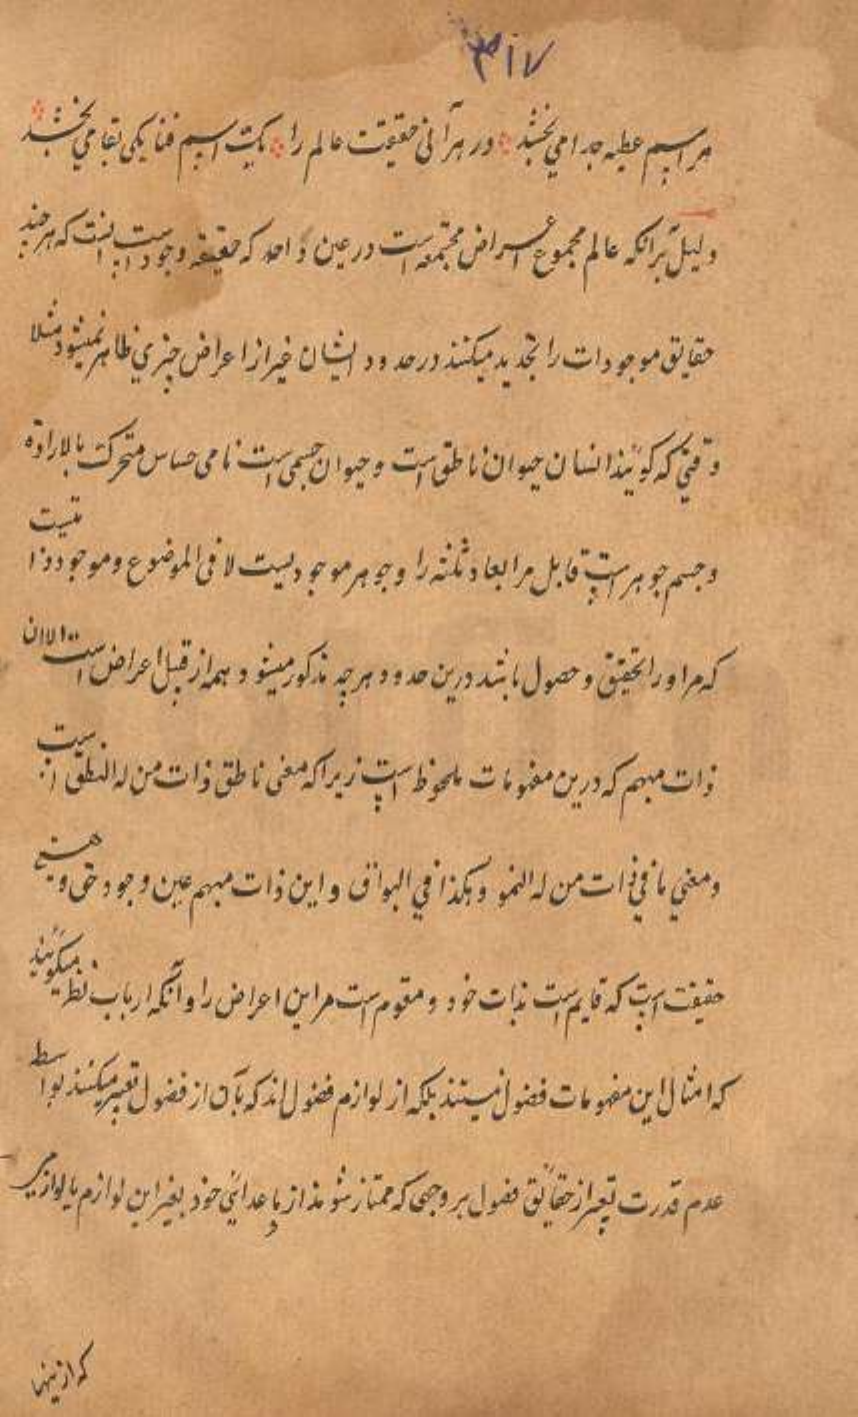 ۳۱۷
هر اسم عطیه جدا می بخشد در هر آنی حقیقت عالم را یک اسم فنا یکی بقا می بخشد
دلیل برانکه عالم مجموع اعراض مجتمعه است در عین واحد که حقیقة وجود است انست که هر چند
حقایق موجودات را تحدید میکنند در حدود ایشان غیر از اعراض چیزی ظاهر نمیشود مثلا
وقتی که کویند انسان حیوان ناطق است و حیوان جسمی است نامی حساس متحرک بالاراده
وجسم جوهر است قابل مر ابعاد ثلثه را وجوهر موجودیست لا فی الموضوع وموجود ذاتیست
که مر او را تحقق و حصول باشد درین حدود هر چه مذکور میشود همه از قبیل اعراض است الا ان
ذات مبهم که درین مفهومات ملحوظ است زیرا که معنی ناطق ذات من له النطق است
ومعنی نامی ذات من له النمو وهکذا فی البواقی و این ذات مبهم عین وجود حق و
حقیقت است که قایم است بذات خود و مقوم است مر این اعراض را و آنکه ارباب نظر میکویند
که امثال این مفهومات فصول نیستند بلکه از لوازم فصول اند که بآن از فصول تعبیر میکنند بواسطه
عدم قدرت تعبیر از حقایق فصول بر وجهی که ممتاز شوند از ما عدای خود بغیر این لوازم یا لوازمی
که ازینها